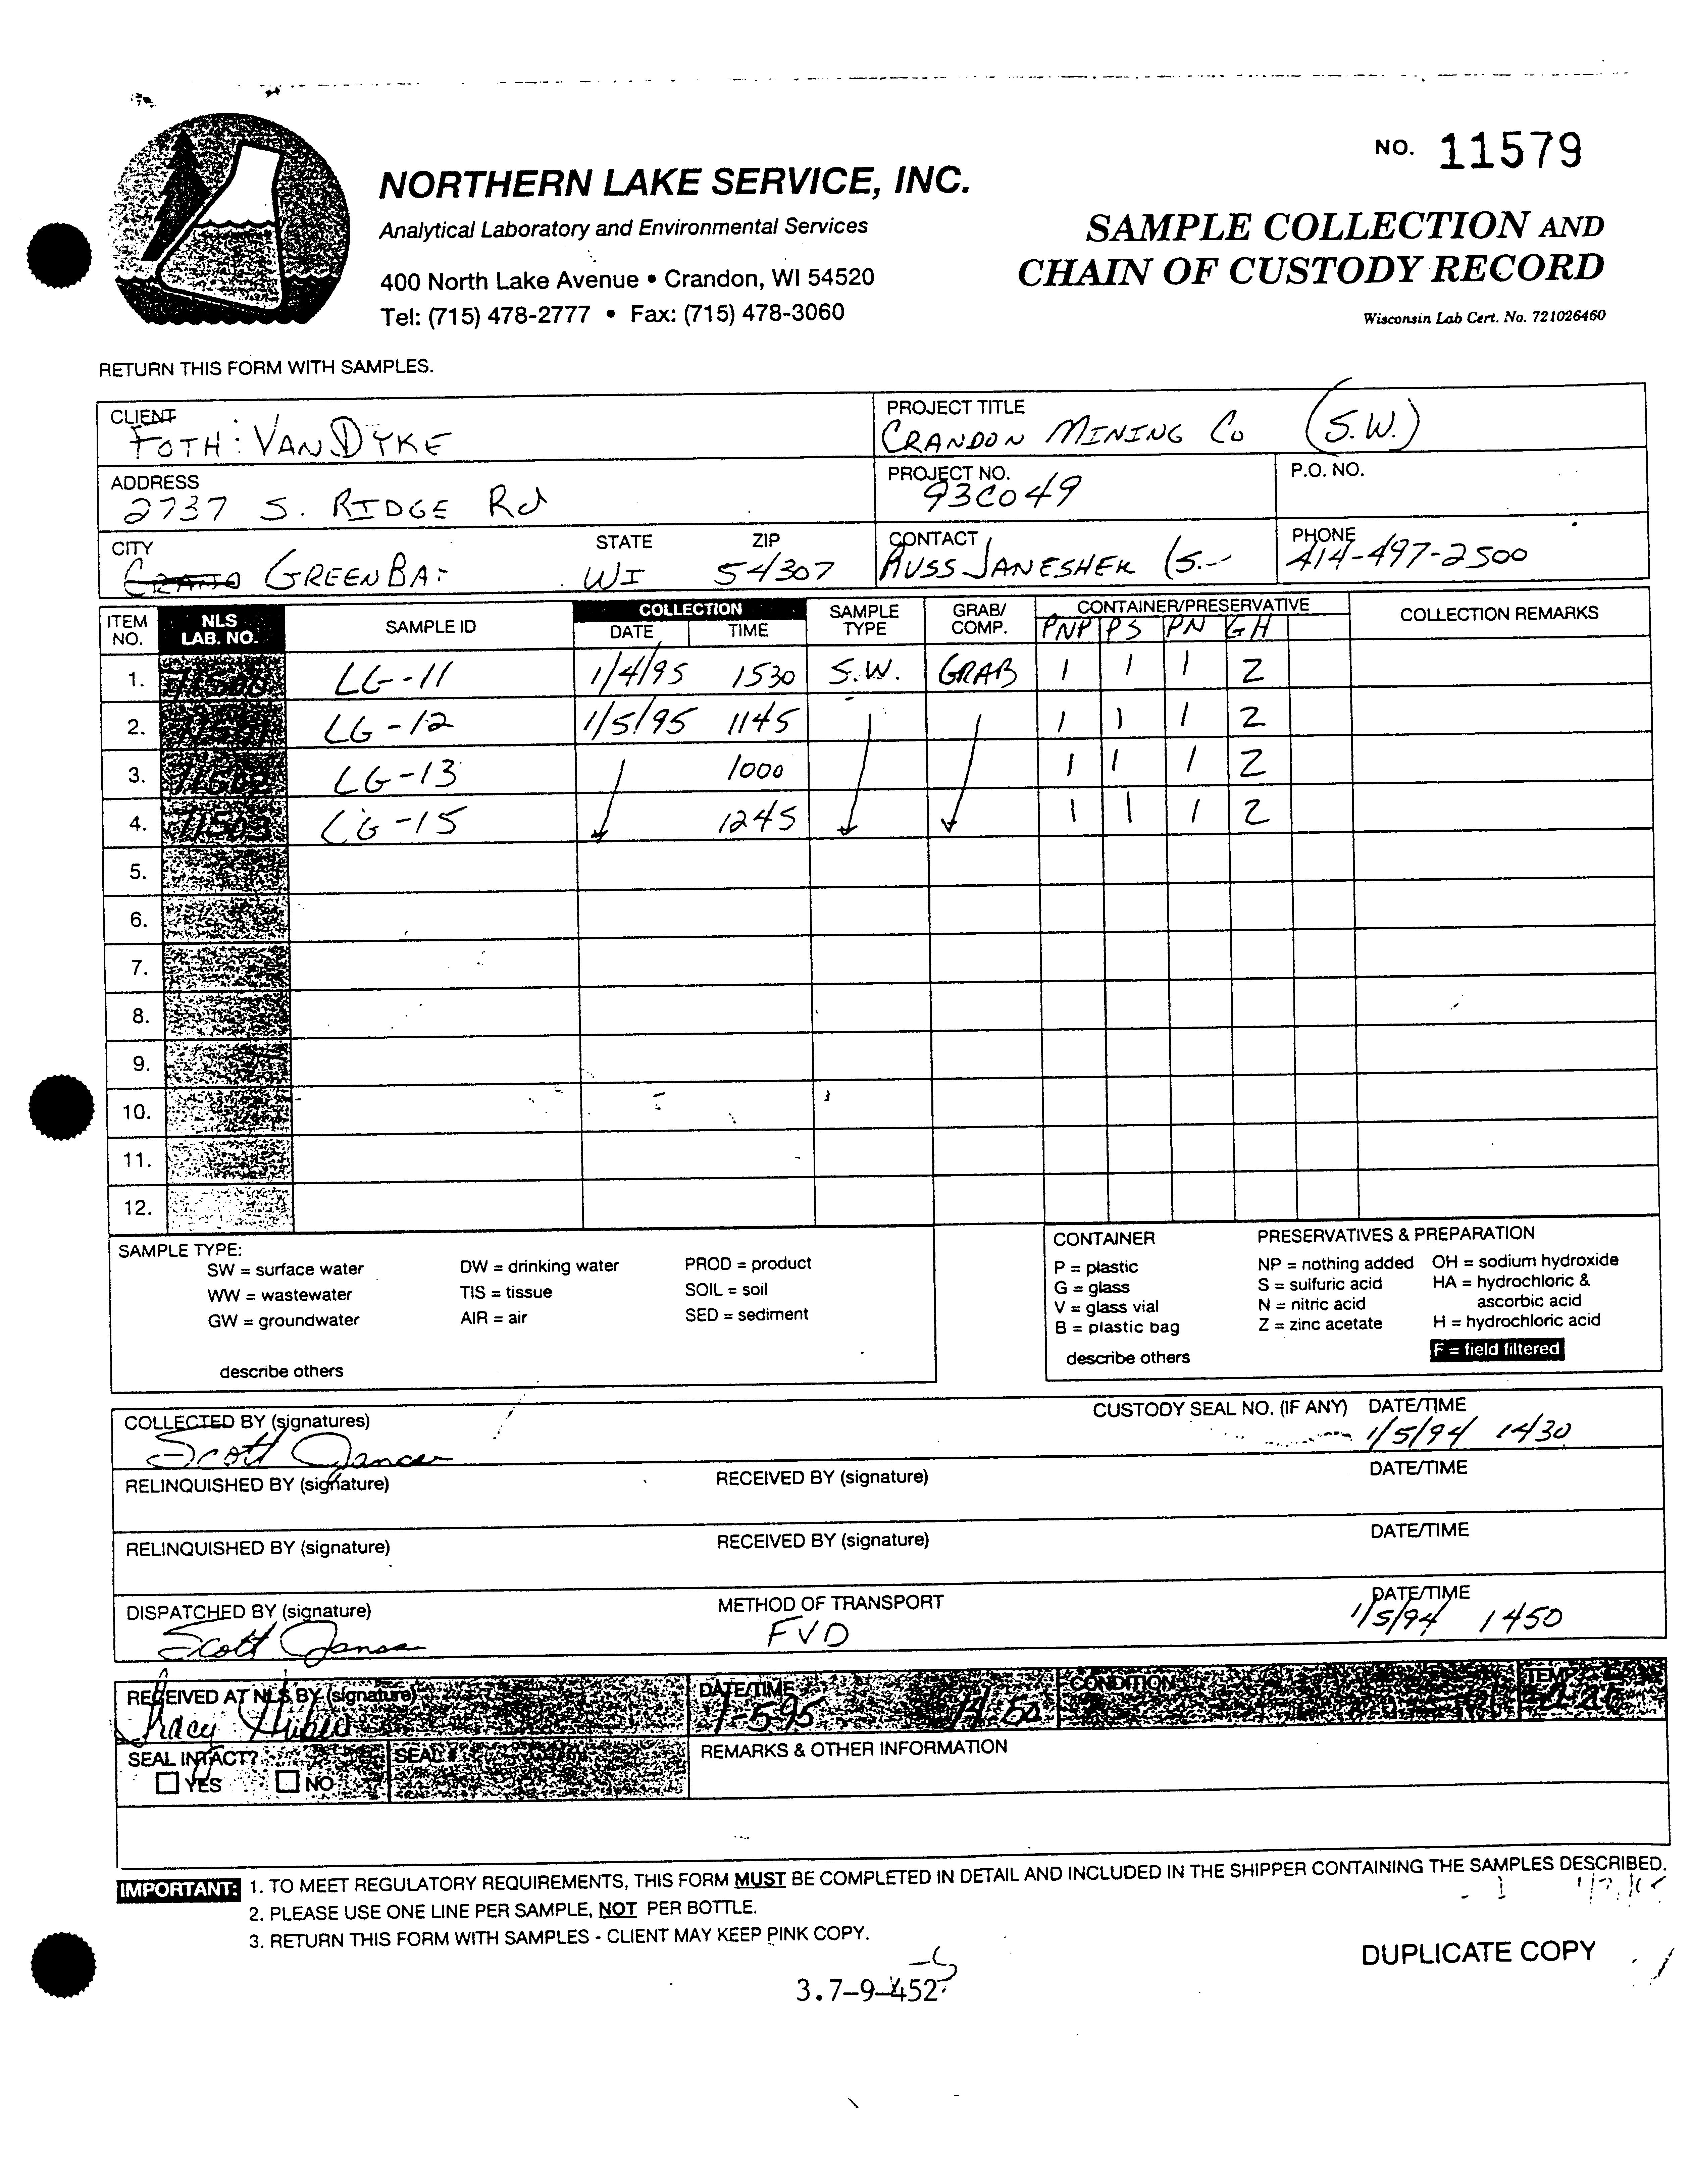 NO. 11579
NORTHERN LAKE SERVICE, INC.
Analytical Laboratory and Environmental Services
400 North Lake Avenue • Crandon, WI 54520
Tel: (715) 478-2777 • Fax: (715) 478-3060
SAMPLE COLLECTION AND
CHAIN OF CUSTODY RECORD
Wisconsin Lab Cert. No. 721026460
RETURN THIS FORM WITH SAMPLES.
CLIENT PROJECT TITLE
FOTH : VAN DYKE CRANDON MINING Co (S.W.)
ADDRESS PROJECT NO. P.O. NO.
2737 S. RIDGE Rd 93C049
CITY STATE ZIP CONTACT PHONE
GREEN BAY WI 54307 RUSS JANESHEK 414-497-2500
ITEM NO. NLS LAB. NO. SAMPLE ID COLLECTION DATE TIME SAMPLE TYPE GRAB/ COMP. CONTAINER/PRESERVATIVE COLLECTION REMARKS
PNP PS PN GH
1. 11500 LG-11 1/4/95 1530 S.W. GRAB 1 1 1 2
2. LG-12 1/5/95 1145 1 1 1 2
3. 11502 LG-13 1000 1 1 1 2
4. 11503 LG-15 1245 1 1 1 2
5.
6.
7.
8.
9.
10.
11.
12.
SAMPLE TYPE:
SW = surface water DW = drinking water PROD = product
WW = wastewater TIS = tissue SOIL = soil
GW = groundwater AIR = air SED = sediment
describe others
CONTAINER PRESERVATIVES & PREPARATION
P = plastic NP = nothing added OH = sodium hydroxide
G = glass S = sulfuric acid HA = hydrochloric &
V = glass vial N = nitric acid ascorbic acid
B = plastic bag Z = zinc acetate H = hydrochloric acid
describe others F = field filtered
COLLECTED BY (signatures) CUSTODY SEAL NO. (IF ANY) DATE/TIME
Scott Jansen 1/5/94 1430
RELINQUISHED BY (signature) RECEIVED BY (signature) DATE/TIME
RELINQUISHED BY (signature) RECEIVED BY (signature) DATE/TIME
DISPATCHED BY (signature) METHOD OF TRANSPORT DATE/TIME
Scott Jansen FVD 1/5/94 1450
RECEIVED AT NLS BY (signature) DATE/TIME CONDITION TEMP
Tracy 1-5-95 14:50
SEAL INTACT? SEAL # REMARKS & OTHER INFORMATION
YES NO
IMPORTANT: 1. TO MEET REGULATORY REQUIREMENTS, THIS FORM MUST BE COMPLETED IN DETAIL AND INCLUDED IN THE SHIPPER CONTAINING THE SAMPLES DESCRIBED.
2. PLEASE USE ONE LINE PER SAMPLE, NOT PER BOTTLE.
3. RETURN THIS FORM WITH SAMPLES - CLIENT MAY KEEP PINK COPY.
DUPLICATE COPY
3.7-9-452